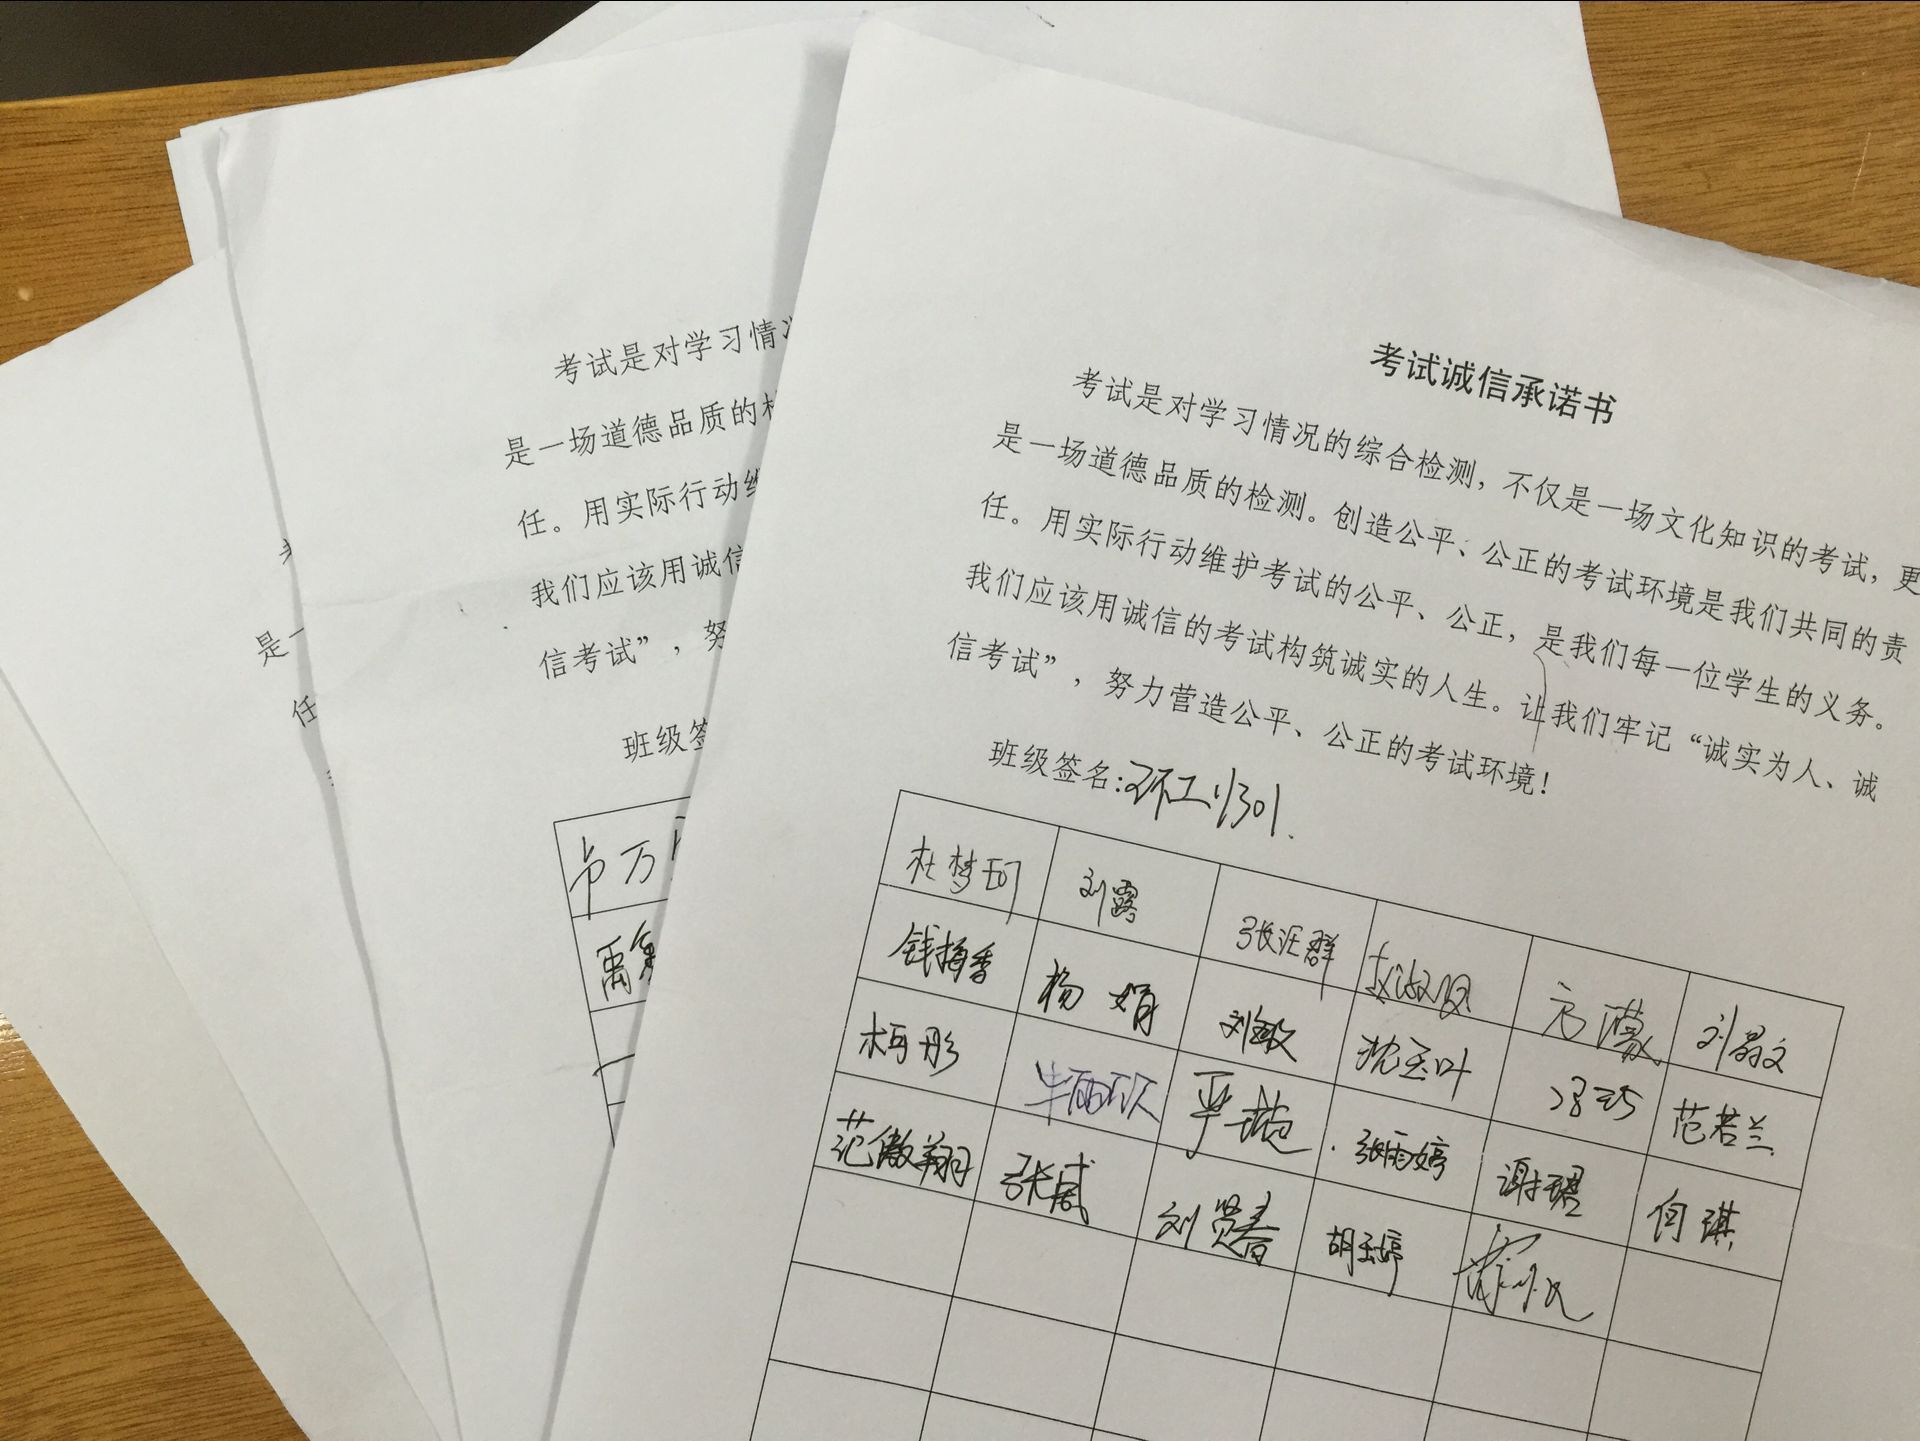 考试诚信承诺书
考试是对学习情况的综合检测，不仅是一场文化知识的考试，更
是一场道德品质的检测。创造公平、公正的考试环境是我们共同的责
任。用实际行动维护考试的公平、公正，是我们每一位学生的义务。
我们应该用诚信的考试构筑诚实的人生。让我们牢记“诚实为人、诚
信考试”，努力营造公平、公正的考试环境！
班级签名：环工1301.
杜梦珂 刘露 张汪群 方濛 刘易文
钱梅香 杨娟 刘敏 沈玉叶 冯巧 范若兰
柯彤 牛丽欣 严璇 张雨婷 谢珺 何琪
范傲翔 张威 刘贤春 胡玉婷
考试是对学习情
是一场道德品质的
任。用实际行动维
我们应该用诚信
信考试”，努
班级签
卢万
禹
是一
任